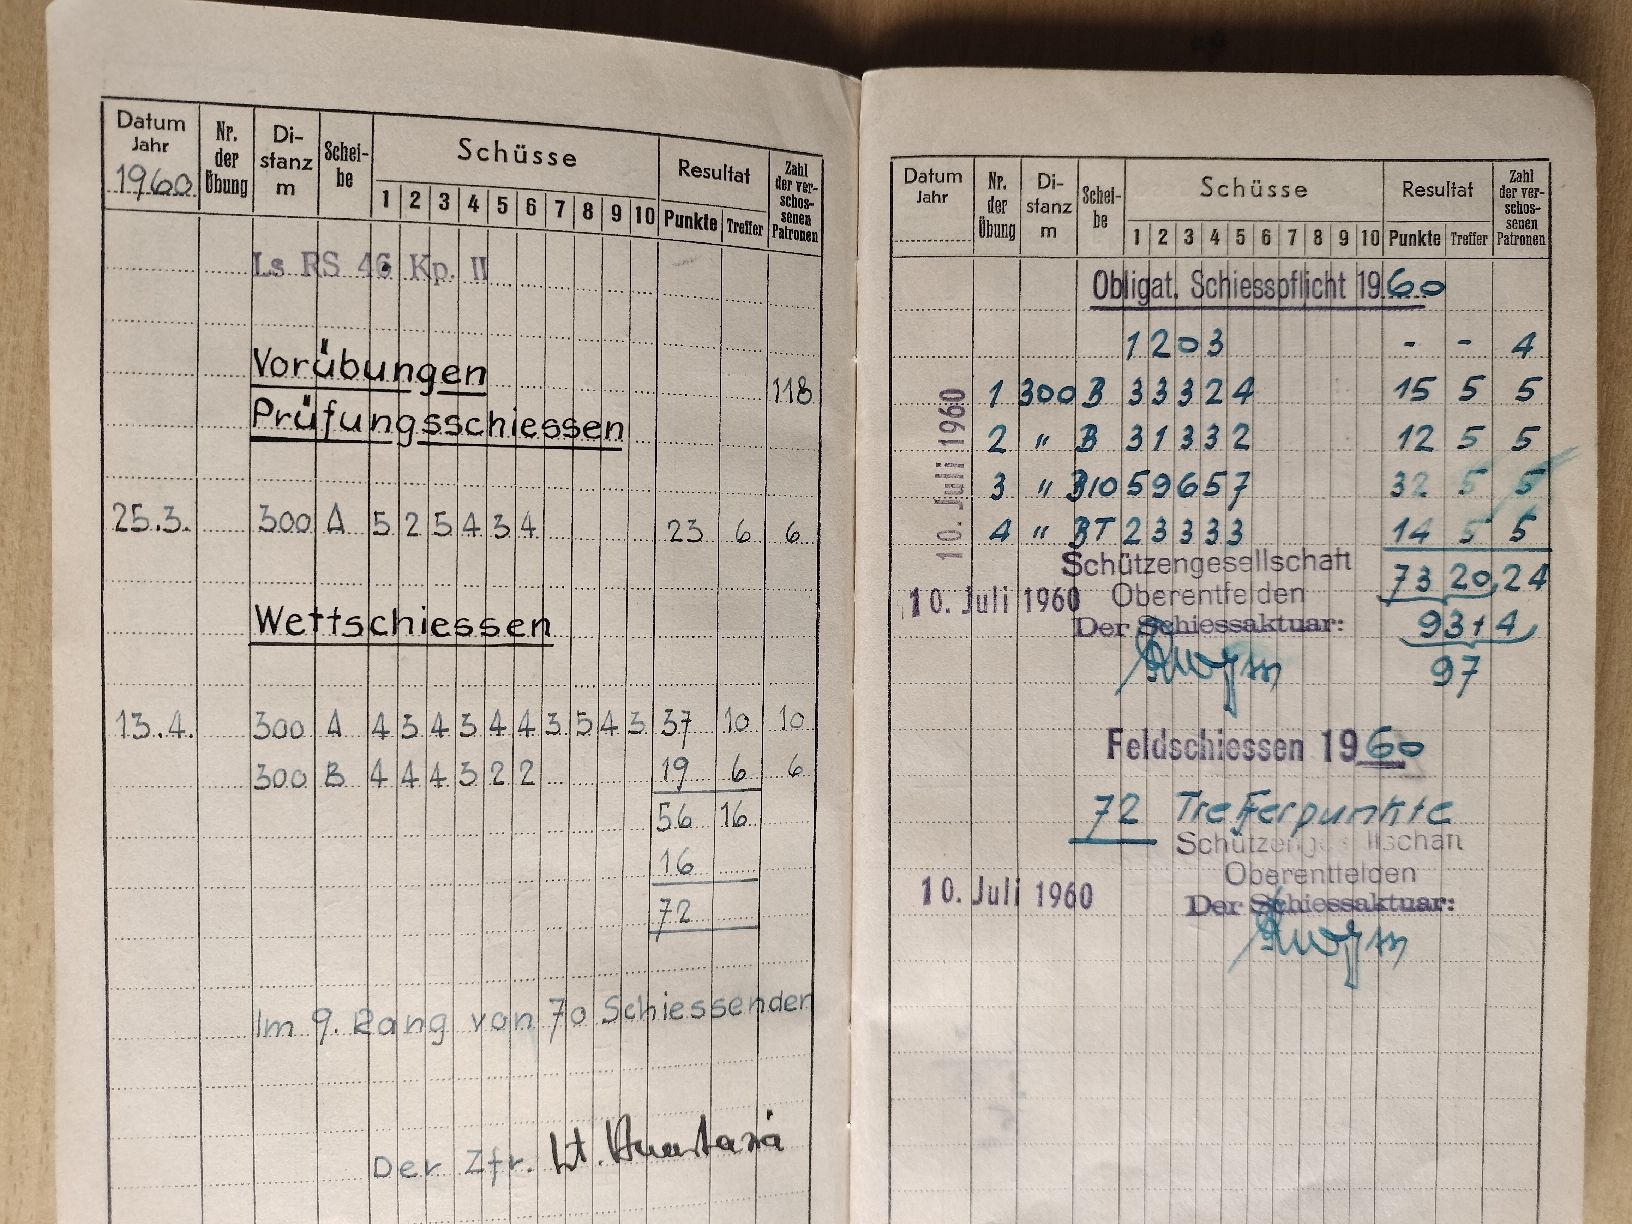 Datum Jahr 1960 Nr. der Übung Di- stanz m Schei- be Schüsse 1 2 3 4 5 6 7 8 9 10 Resultat Punkte Treffer Zahl der ver- schos- senen Patronen
Ls RS 46 Kp. II
Vorübungen 118
Prüfungsschiessen
25.3. 300 A 5 2 5 4 3 4 23 6 6
Wettschiessen
13.4. 300 A 4 3 4 3 4 4 3 5 4 3 37 10 10
300 B 4 4 4 3 2 2 19 6 6
56 16
16
72
Im 9. Rang von 70 Schiessenden
Der Zfr. Lt.
Datum Jahr Nr. der Übung Di- stanz m Schei- be Schüsse 1 2 3 4 5 6 7 8 9 10 Resultat Punkte Treffer Zahl der ver- schos- senen Patronen
Obligat. Schiesspflicht 1960
1 2 0 3 - - 4
10. Juli 1960
1 300 B 3 3 3 2 4 15 5 5
2 " B 3 1 3 3 2 12 5 5
3 " B10 5 9 6 5 7 32 5 5
4 " BT 2 3 3 3 3 14 5 5
Schützengesellschaft 73 20 24
10. Juli 1960 Oberentfelden
Der Schiessaktuar: 93 + 4
97
Feldschiessen 1960
72 Trefferpunkte
Schützengesellschaft
Oberentfelden
10. Juli 1960
Der Schiessaktuar: